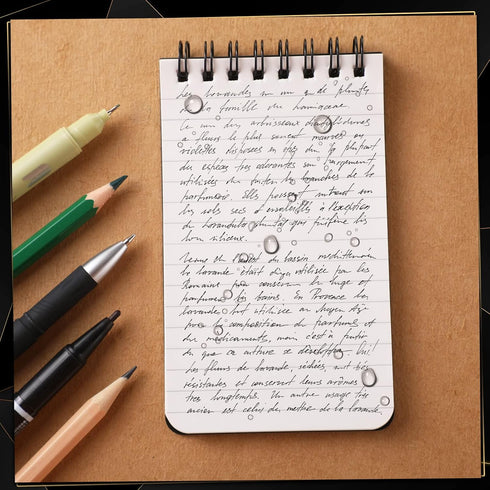 Les lavandes sont un genre de plantes
de la famille des lamiaceae
Ce sont des arbrisseaux
à fleurs le plus souvent mauves ou
violettes disposées en épis dont la plupart
des espèces très odorantes sont largement
utilisées dans toutes les branches de la
parfumerie. Elles poussent surtout sur
les sols secs et ensoleillés à l'exception
de Lavandula qui préfère les
sols siliceux.
Venue de l'ouest du bassin méditerranéen
la lavande était déjà utilisée par les
Romains pour conserver le linge et
parfumer les bains. En Provence les
lavandes sont utilisées au Moyen Âge
pour la composition de parfums et
de médicaments, mais c'est à partir
du que sa culture se développe.
les fleurs de lavande, séchées, sont très
résistantes et conservent leurs arômes
très longtemps. Un autre usage très
ancien est celui de mettre de la lavande